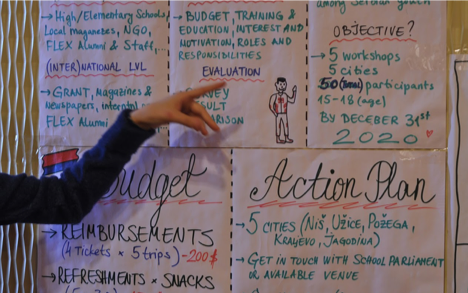 → High/Elementary Schools,
Local magazines, NGO,
FLEX Alumni & Staff,
(INTER)NATIONAL LVL
→ GRANT, Magazines &
Newspapers,
FLEX Alumni
→ BUDGET, TRAINING &
EDUCATION, INTEREST AND
MOTIVATION, ROLES AND
RESPONSIBILITIES
EVALUATION
among Serbian youth
OBJECTIVE?
→ 5 workshops
5 cities
50 (total) participants
15-18 (age)
BY DECEBER 31st
2020
Budget
→ REIMBURSEMENTS
(4 Tickets × 5 trips) -200$
→ REFRESHMENTS + SNACKS
Action Plan
→ 5 CITIES (NIŠ, UŽICE, POŽEGA,
KRALJEVO, JAGODINA)
→ GET IN TOUCH WITH SCHOOL PARLIAMENT
OR AVAILABLE VENUE